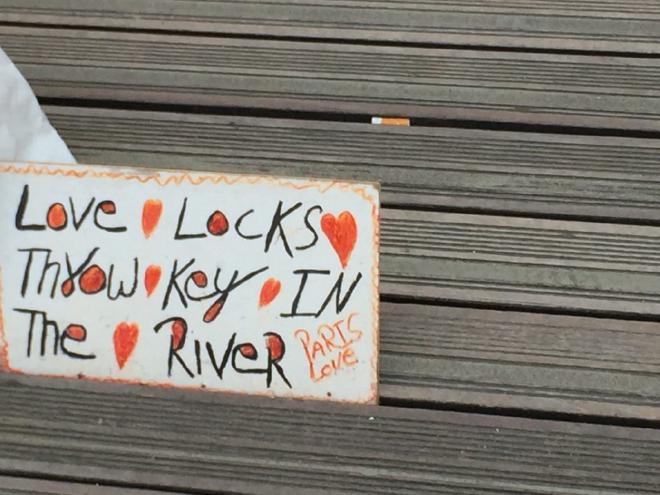 Love Locks
Throw Key IN
The River
PARIS
Love